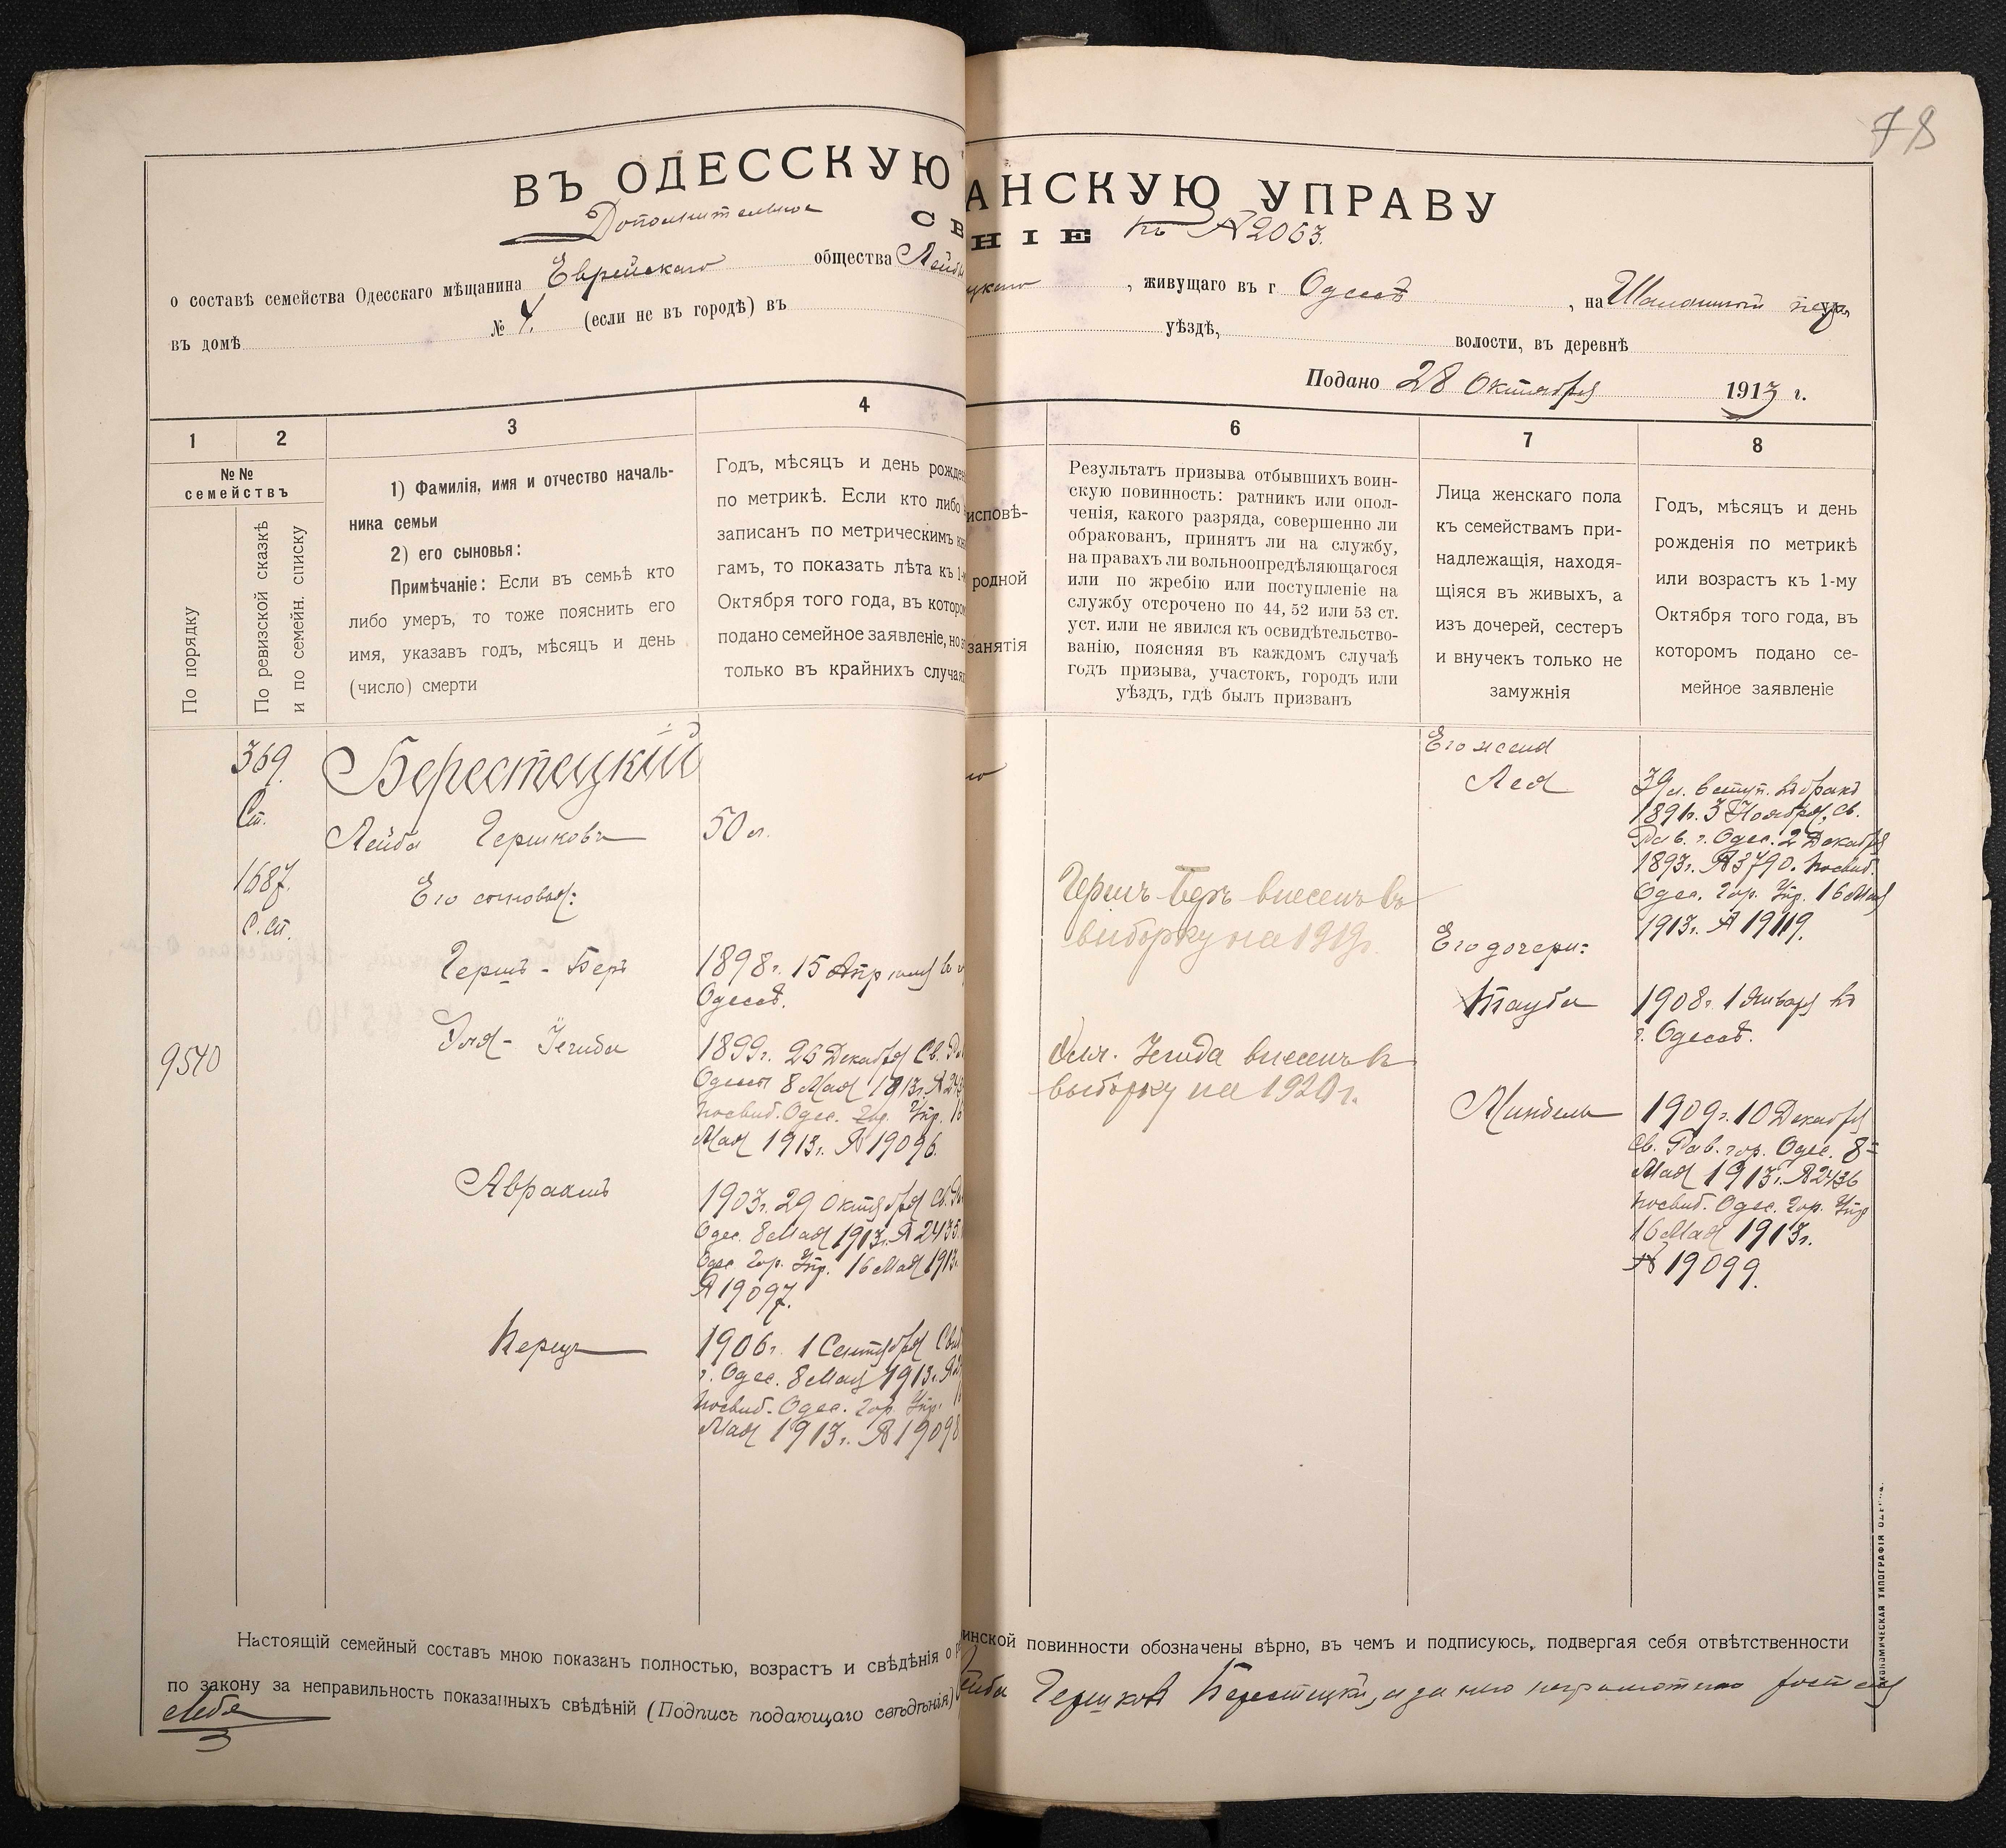 78
ВЪ ОДЕССКУЮ АНСКУЮ УПРАВУ
Дополнительное СВ НІЕ къ № 2063.
о составѣ семейства Одесскаго мѣщанина Еврейскаго общества Лейбы цкаго, живущаго въ г Одессѣ, на Шалашный пер.
въ домѣ № 4. (если не въ городѣ) въ уѣздѣ, волости, въ деревнѣ
Подано 28 Октября 1913 г.
1
2
3
4
6
7
8
№№
семействъ
По порядку
По ревизской сказкѣ
и по семейн. списку
1) Фамилія, имя и отчество началь-
ника семьи
2) его сыновья:
Примѣчаніе: Если въ семьѣ кто
либо умеръ, то тоже пояснить его
имя, указавъ годъ, мѣсяцъ и день
(число) смерти
Годъ, мѣсяцъ и день рожден
по метрикѣ. Если кто либо
записанъ по метрическимъ кн
гамъ, то показать лѣта къ 1-м
Октября того года, въ которо
подано семейное заявленіе, но э
только въ крайнихъ случая
исповѣ-
родной
занятія
Результатъ призыва отбывшихъ воин-
скую повинность: ратникъ или опол-
ченія, какого разряда, совершенно ли
обракованъ, принятъ ли на службу,
на правахъ ли вольноопредѣляющагося
или по жребію или поступленіе на
службу отсрочено по 44, 52 или 53 ст.
уст. или не явился къ освидѣтельство-
ванію, поясняя въ каждомъ случаѣ
годъ призыва, участокъ, городъ или
уѣздъ, гдѣ былъ призванъ
Лица женскаго пола
къ семействамъ при-
надлежащія, находя-
щіяся въ живыхъ, а
изъ дочерей, сестеръ
и внучекъ только не
замужнія
Годъ, мѣсяцъ и день
рожденія по метрикѣ
или возрастъ къ 1-му
Октября того года, въ
которомъ подано се-
мейное заявленіе
369.
Сп.
1687.
С. сп.
9540
Берестецкій
Лейба Гершковъ
50 л.
Его сыновья:
Гершъ-Беръ
1898 г. 15 Апрѣля въ г
Одессѣ.
Эля-Іегуда
1899 г. 26 Декабря Св. Ра
Одессы 8 Мая 1913 г. № 243
Посвид. Одес. Гор. Упр. 16
Мая 1913 г. № 19096.
Авраамъ
1903 г. 29 Октября Св. Ра
Одес. 8 Мая 1913 г. № 2435.
Одес. Гор. Упр. 16 Мая 1913
№ 19097.
Перецъ
1906 г. 1 Сентября Свид
г. Одес. 8 Мая 1913 г. № 2
Посвид. Одес. Гор. Упр. 16
Мая 1913 г. № 19098
Гершъ Беръ внесенъ въ
выборку на 1919 г.
Эля. Іегуда внесенъ въ
выборку на 1920 г.
Его жена
Лея
39 л. вступ. въ бракъ
1891 г. 3 Ноября, Св.
Рав. г. Одес. 2 Декабря
1893 г. № 3790. Посвид.
Одес. Гор. Упр. 16 Мая
1913 г. № 19119.
Его дочери:
Тауба
1908 г. 1 Января въ
г. Одессѣ.
Миндель
1909 г. 10 Декабря
Св. Рав. гор. Одес. 8
Мая 1913 г. № 2436
Посвид. Одес. Гор. Упр
16 Мая 1913 г.
№ 19099.
Настоящій семейный составъ мною показанъ полностью, возрастъ и свѣдѣнія о инской повинности обозначены вѣрно, въ чемъ и подписуюсь, подвергая себя отвѣтственности
по закону за неправильность показанныхъ свѣдѣній (Подпись подающаго свѣдѣнія) Лейба Гершковъ Берестецкій, а за него неграмотнаго
ЭКОНОМИЧЕСКАЯ ТИПОГРАФІЯ ОДЕССА.